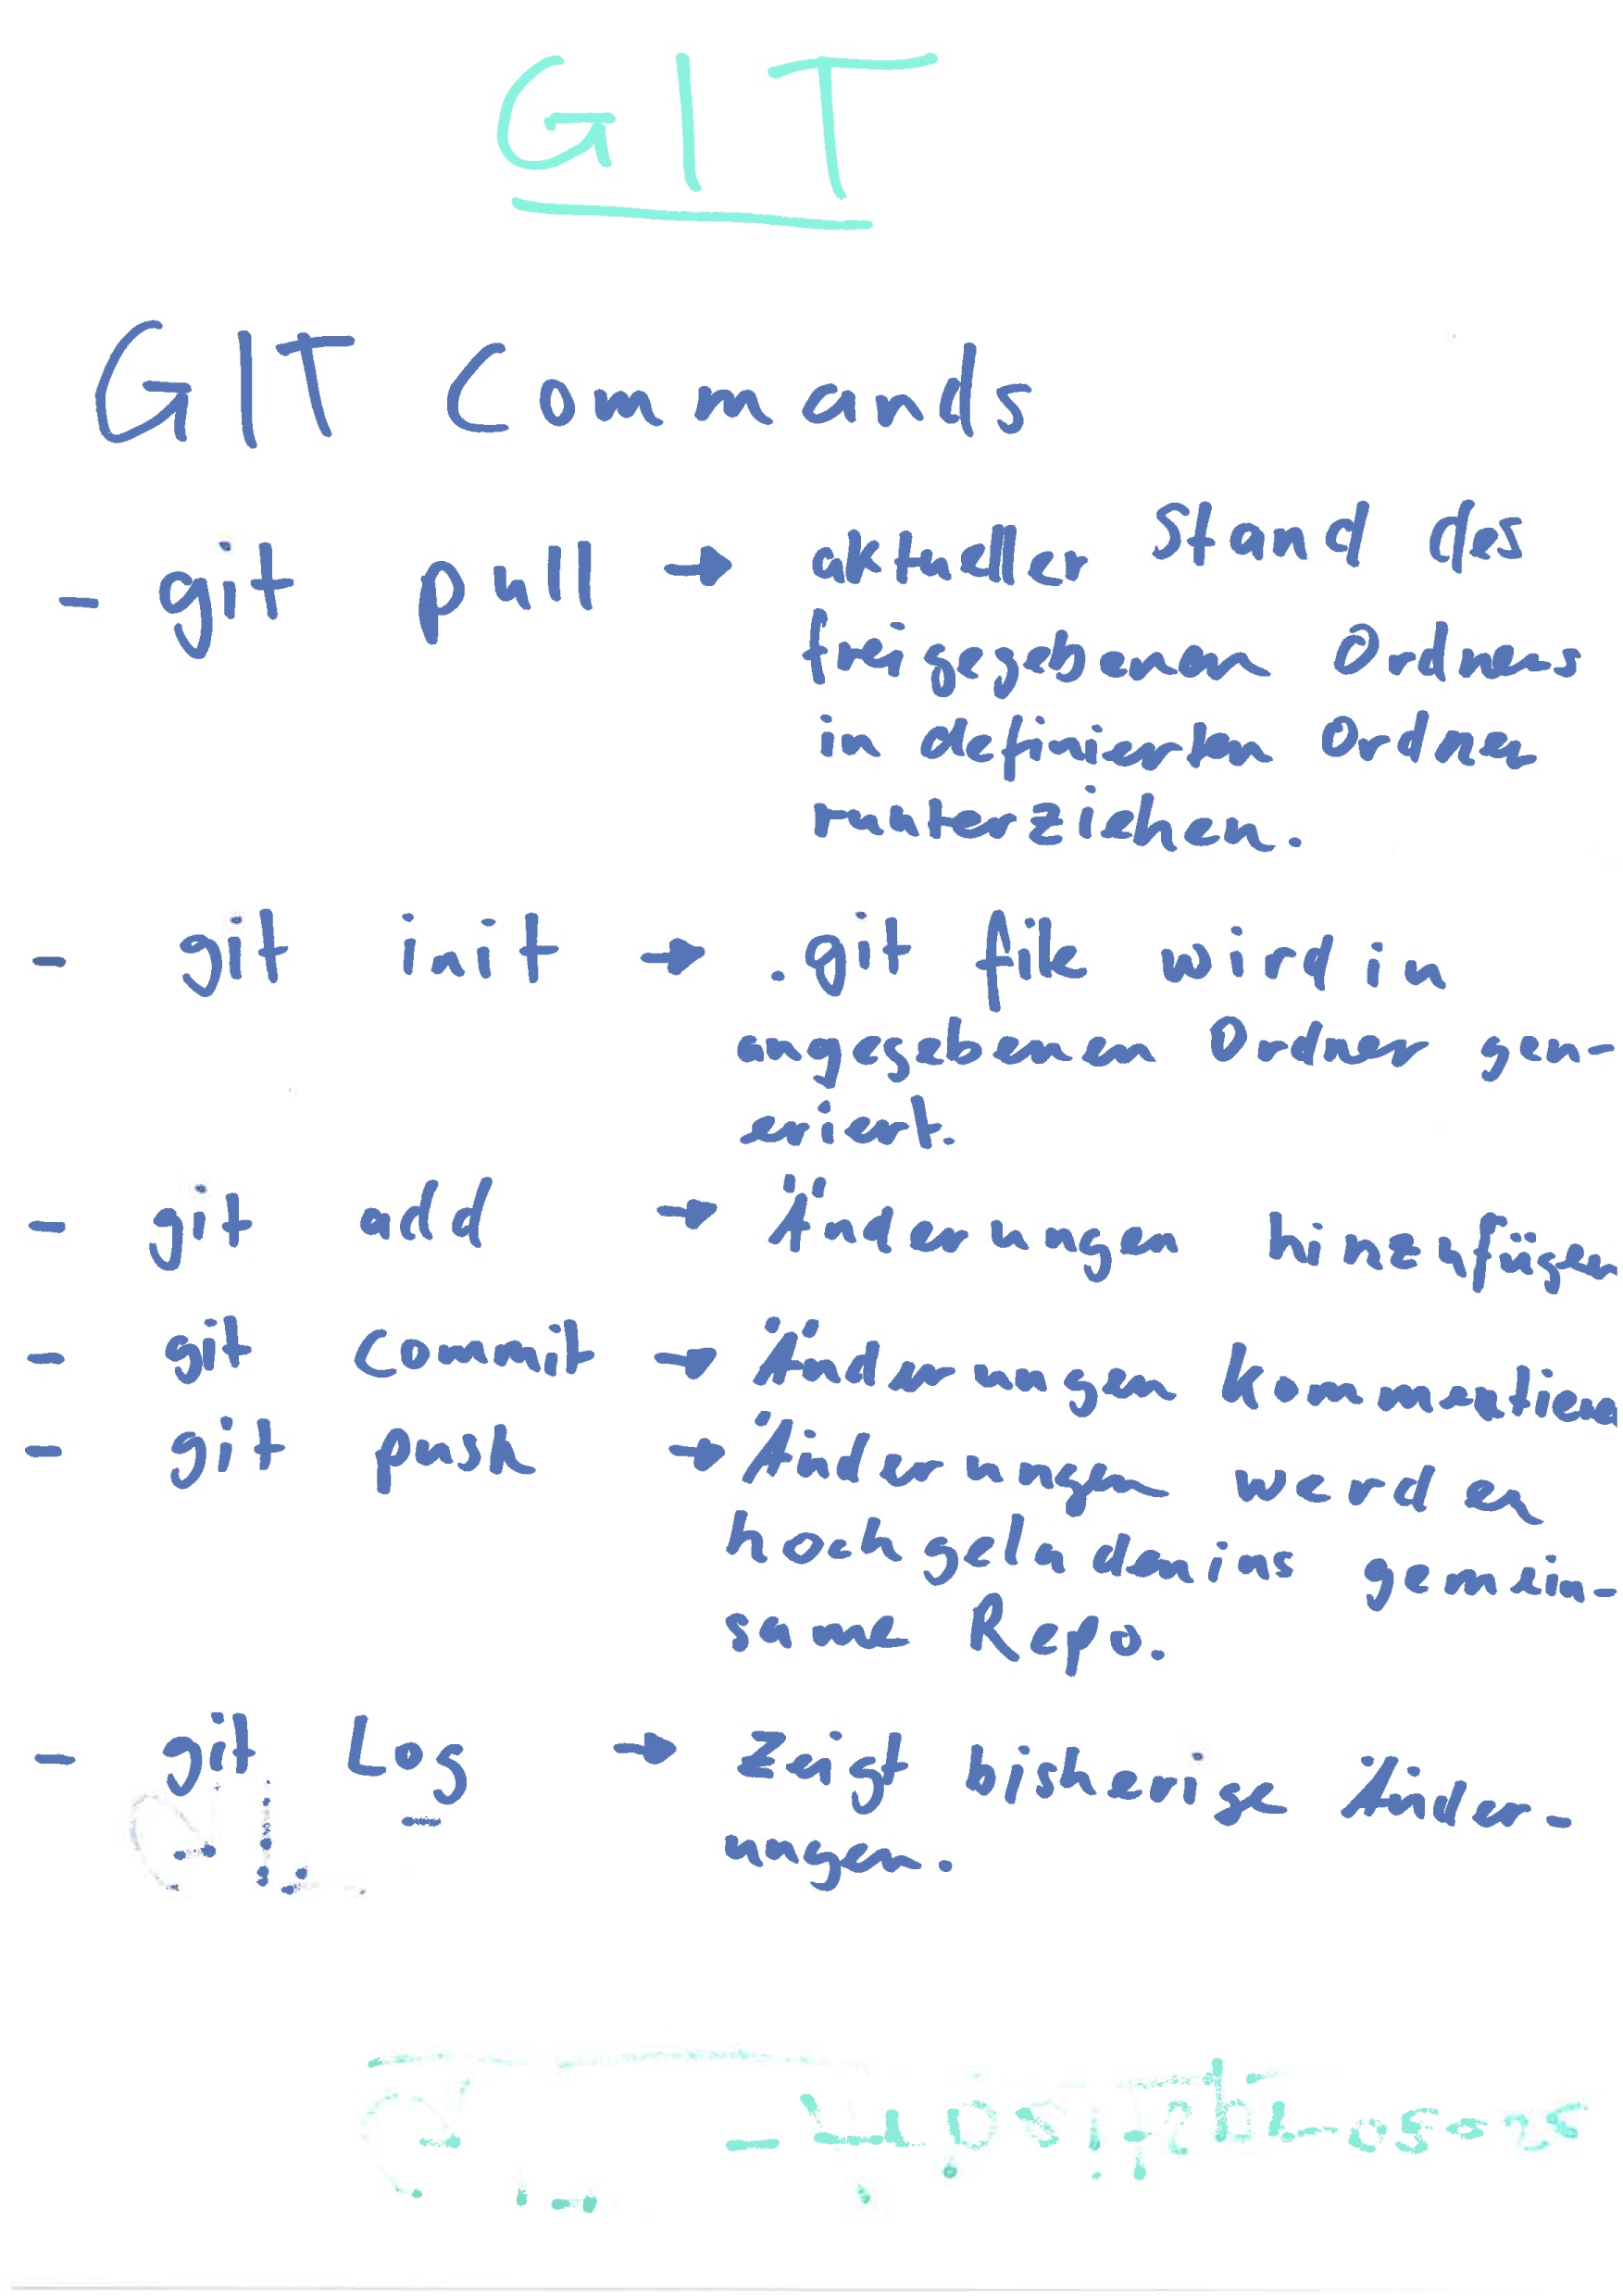 GIT
GIT Commands
- git pull → aktueller Stand des
freigegebenen Ordners
in definierten Ordner
runterziehen.
- git init → .git file wird in
angegebenen Ordner gen-
eriert.
- git add → Änderungen hinzufügen
- git commit → Änderungen kommentieren
- git push → Änderungen werden
hochgeladen ins gemein-
same Repo.
- git Log → Zeigt bisherige Änder-
ungen.